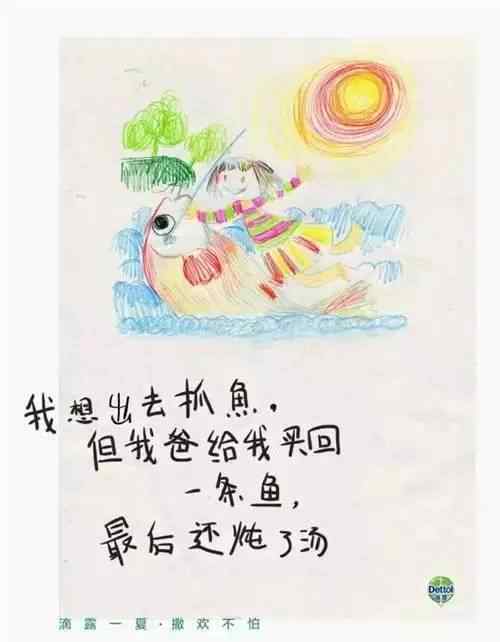 我想出去抓魚，
但我爸给我买回
一条鱼，
最后还炖了汤
Dettol
滴露
滴露一夏·撒欢不怕